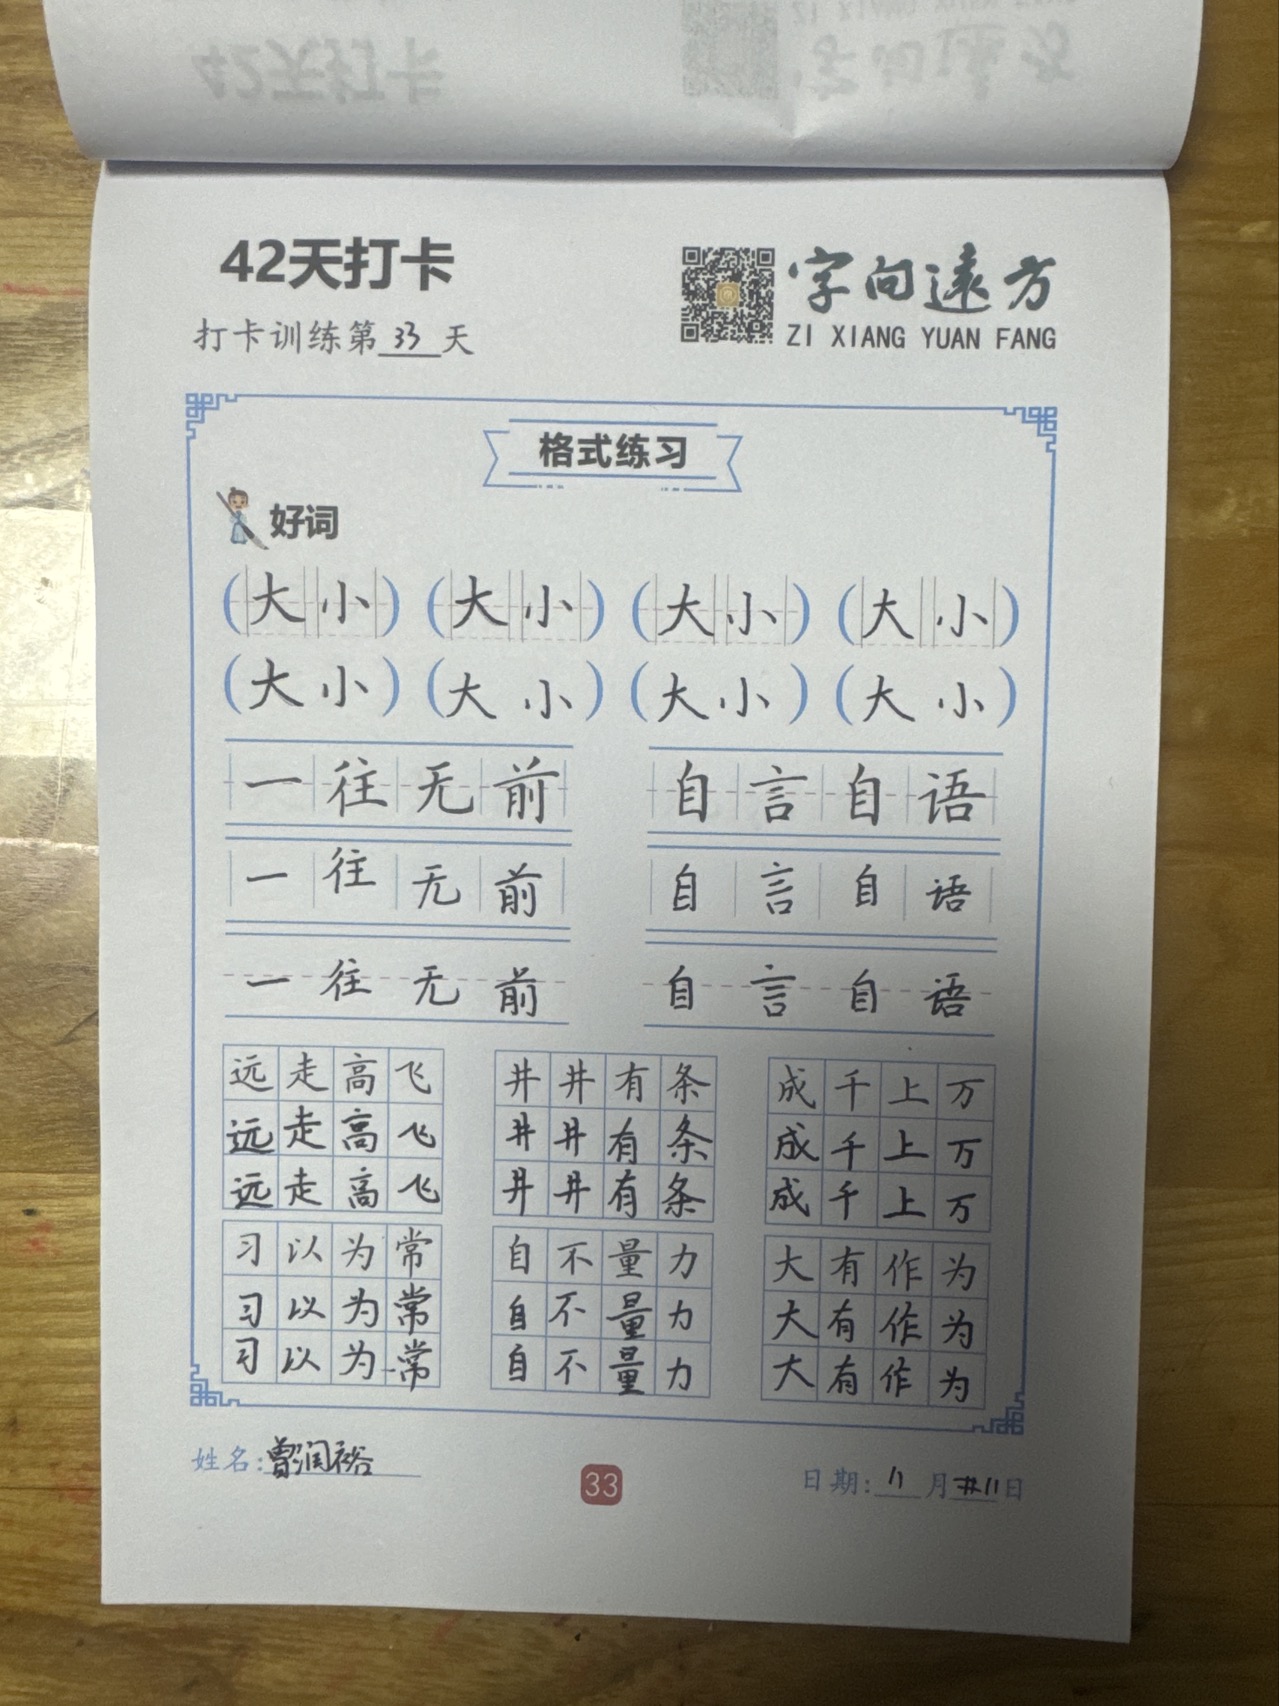 42天打卡
字向遠方
打卡训练第33天
ZI XIANG YUAN FANG
格式练习
好词
(大小) (大小) (大小) (大小)
(大小) (大小) (大小) (大小)
一往无前 自言自语
一往无前 自言自语
一往无前 自言自语
远走高飞 井井有条 成千上万
远走高飞 井井有条 成千上万
远走高飞 井井有条 成千上万
习以为常 自不量力 大有作为
习以为常 自不量力 大有作为
习以为常 自不量力 大有作为
姓名:曾润裕 33 日期:11月11日